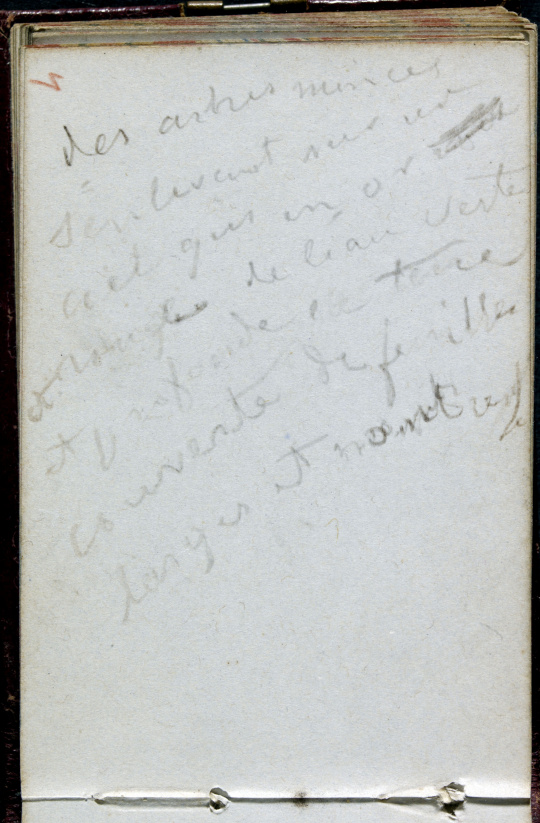 des arbres minces
s'enlevant sur un
ciel gris en or
et rouge de l'eau verte
et profonde la terre
couverte de feuilles
larges et